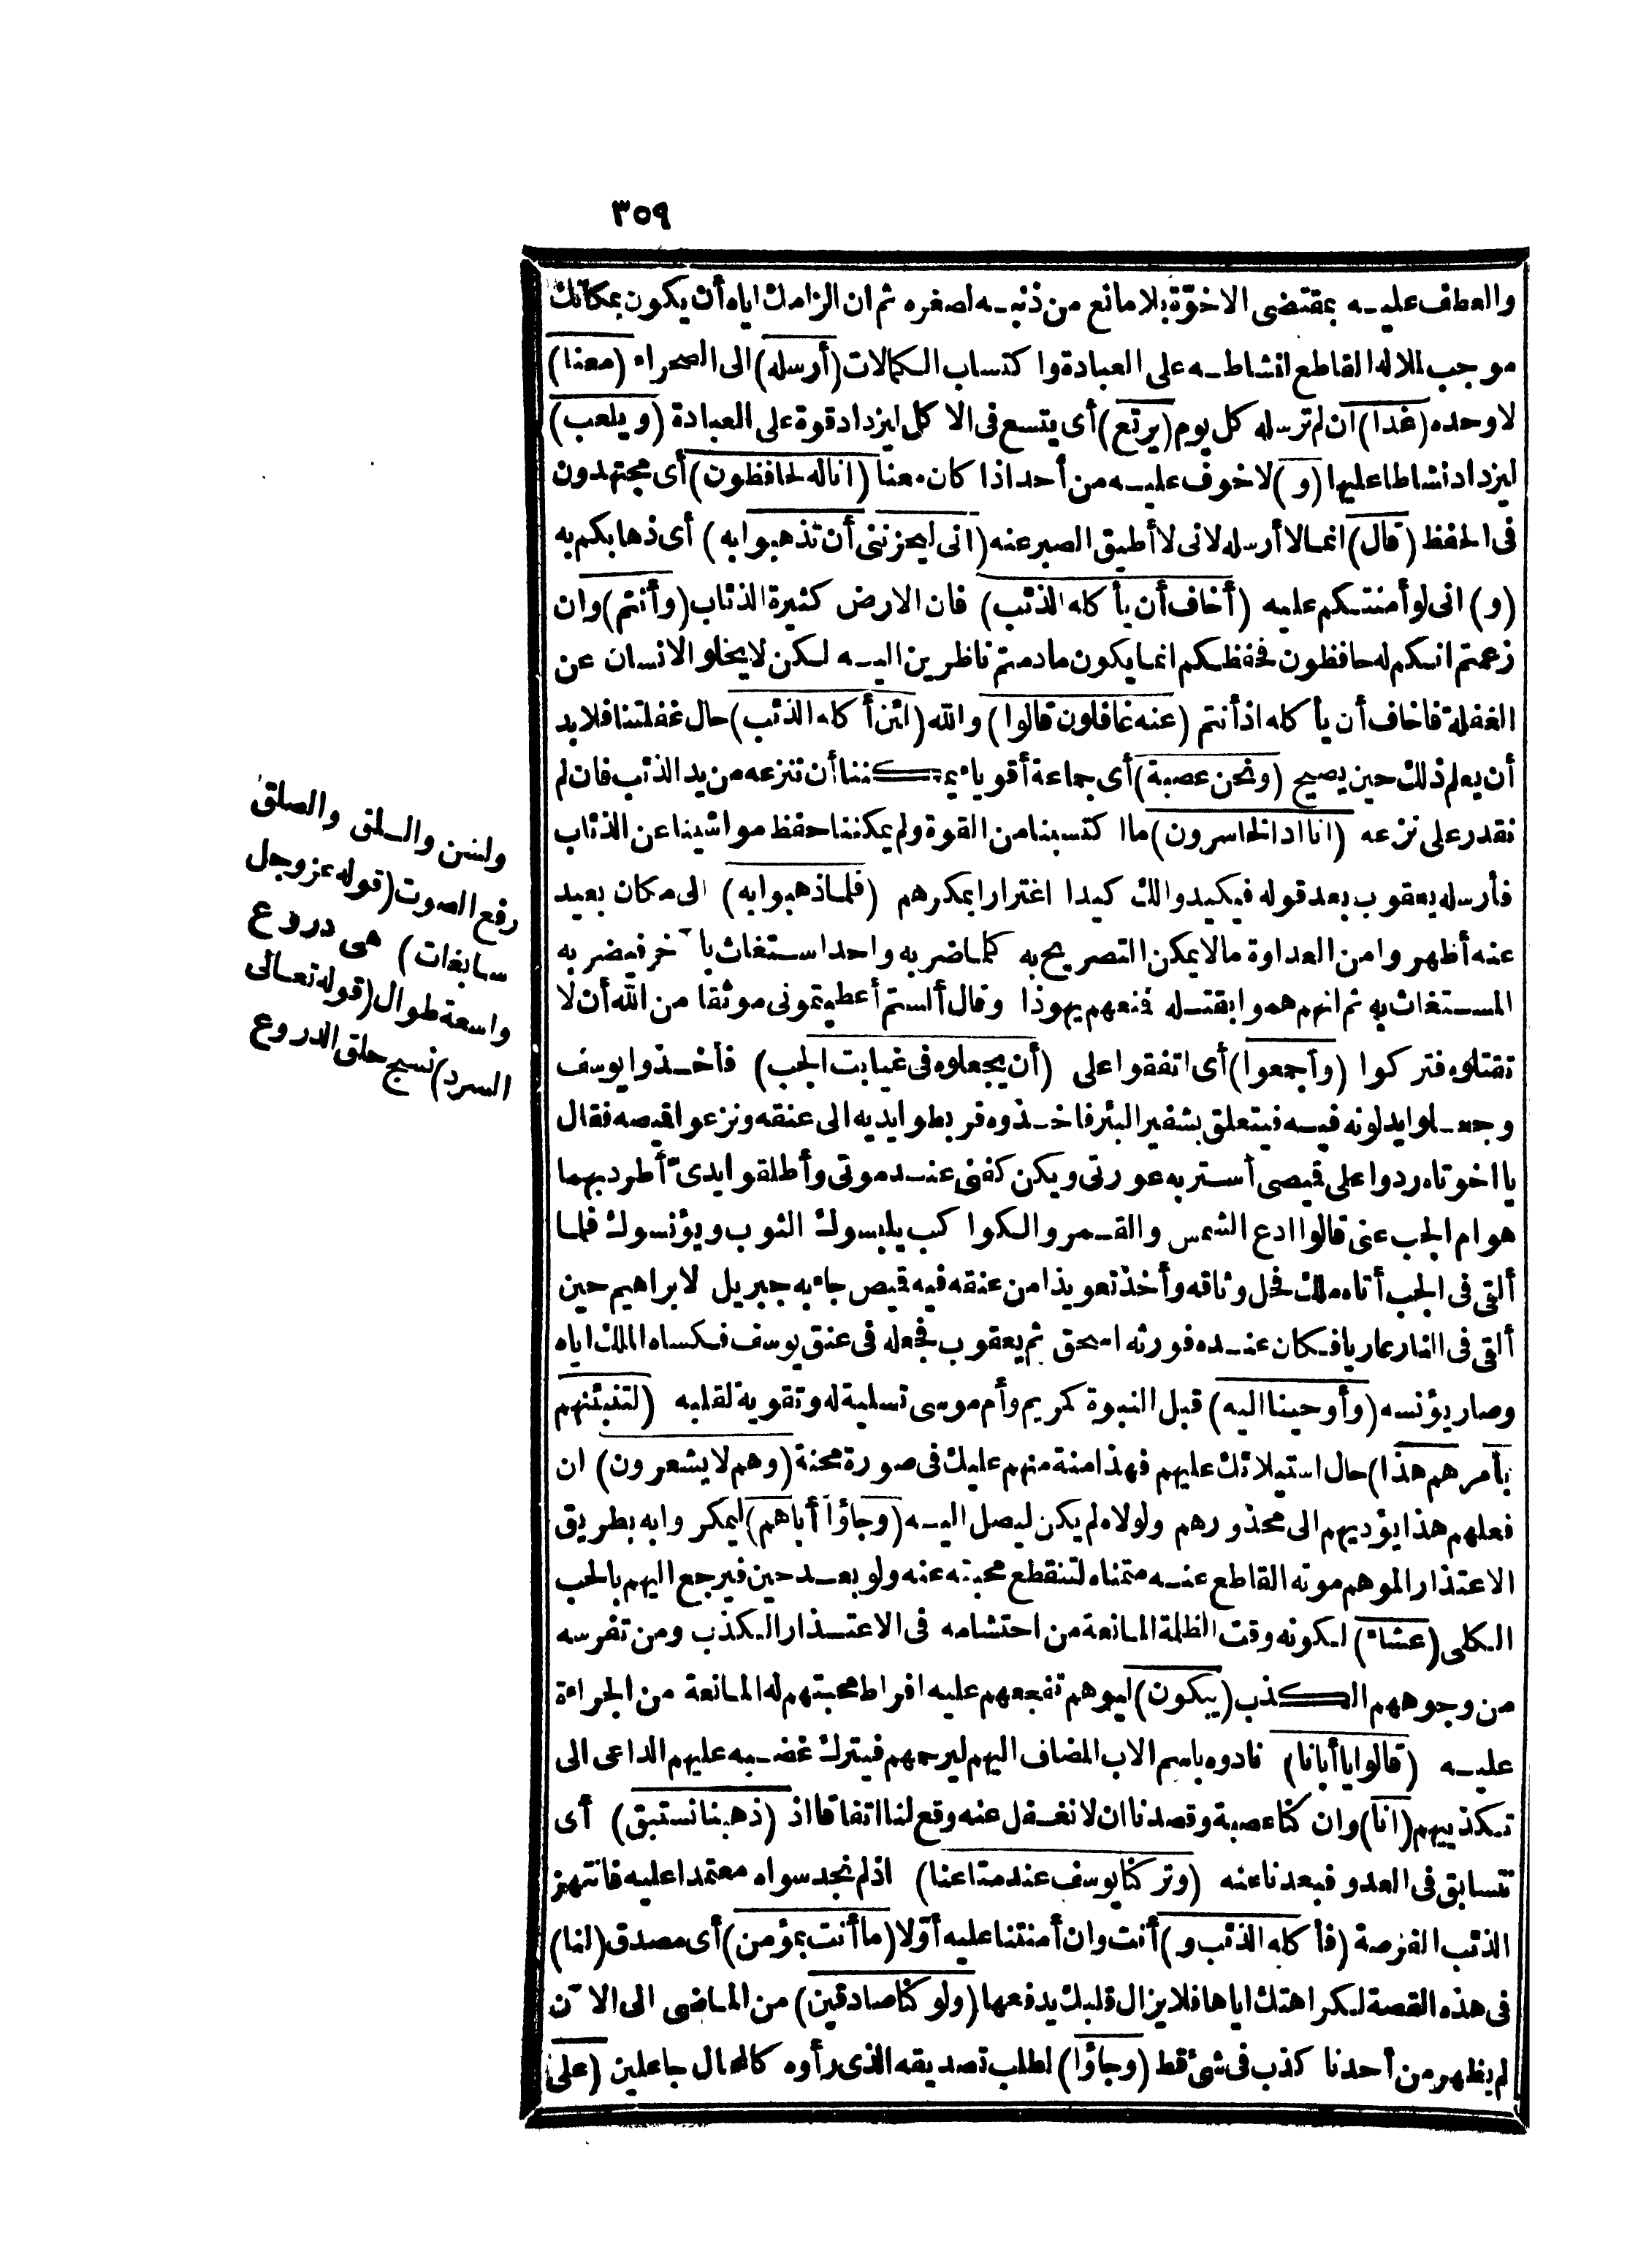 ٣٥٩
والعطف عليه بمقتضى الاخوّة بلا مانع من ذنبه لصغره ثم ان الزامك اياه أن يكون بمكانك
موجب للملالة القاطع لنشاطه على العبادة واكتساب الكمالات (أرسله) الى الصحراء (معنا)
لا وحده (غدا) ان لم ترسله كل يوم (يرتع) أى يتسع فى الاكل ليزداد قوة على العبادة (ويلعب)
ليزداد نشاطا عليها (و) لا خوف عليه من أحد اذا كان معنا (اناله لحافظون) أى مجتهدون
فى الحفظ (قال) انما لا أرسله لانى لا أطيق الصبر عنه (انى ليحزننى أن تذهبوا به) أى ذهابكم به
(و) انى لو أمنتكم عليه (أخاف أن يأكله الذئب) فان الارض كثيرة الذئاب (وأنتم) وان
زعمتم انكم له حافظون فحفظكم انما يكون ما دمتم ناظرين اليه لكن لا يخلو الانسان عن
الغفلة فأخاف أن يأكله اذ أنتم (عنه غافلون قالوا) والله (لئن أكله الذئب) حال غفلتنا فلا بد
أن يعلم ذلك حين يصيح (ونحن عصبة) أى جماعة أقوياء يمكننا أن ننزعه من يد الذئب فان لم
نقدر على نزعه (انا اذا لخاسرون) ما اكتسبنا من القوة ولم يمكننا حفظ مواشينا عن الذئاب
فأرسله يعقوب بعد قوله فيكيدوا لك كيدا اغترارا بمكرهم (فلما ذهبوا به) الى مكان بعيد
عنه أظهروا من العداوة ما لا يمكن التصريح به كلما ضربه واحد استغاث بآخر فيضربه
المستغاث به ثم انهم هموا بقتله فمنعهم يهوذا وقال ألستم أعطيتمونى موثقا من الله أن لا
تقتلوه فتركوا (وأجمعوا) أى اتفقوا على (أن يجعلوه فى غيابت الجب) فأخذوا يوسف
وجعلوا يدلونه فيه فيتعلق بشفير البئر فأخذوه فربطوا يديه الى عنقه ونزعوا قميصه فقال
يا اخوتاه ردوا على قميصى أستر به عورتى ويكن كفنى عند موتى وأطلقوا يدىّ أطرد بهما
هوام الجب عنى قالوا ادع الشمس والقمر والكواكب يلبسوك الثوب ويؤنسوك فلما
ألقى فى الجب أتاه ملك فحل وثاقه وأخذ تعويذا من عنقه فيه قميص جاء به جبريل لابراهيم حين
ألقى فى النار عاريا فكان عنده فورثه اسحق ثم يعقوب فجعله فى عنق يوسف فكساه الملك اياه
وصار يؤنسه (وأوحينا اليه) قبل النبوة كمريم وأم موسى تسلية له وتقوية لقلبه (لتنبئنهم
بأمرهم هذا) حال استيلائك عليهم فهذا منة منهم عليك فى صورة محنة (وهم لا يشعرون) ان
فعلهم هذا يؤديهم الى محذورهم ولولاه لم يكن ليصل اليه (وجاؤا أباهم) ليمكروا به بطريق
الاعتذار الموهم موته القاطع عنه متمناه لتنقطع محبته عنه ولو بعد حين فيرجع اليهم بالحب
الكلى (عشاء) لكونه وقت الظلمة المانعة من احتشامه فى الاعتذار الكذب ومن تفرسه
من وجوههم الكذب (يبكون) ليوهم تفجعهم عليه افراط محبتهم له المانعة من الجراءة
عليه (قالوا يا أبانا) نادوه باسم الاب المضاف اليهم ليرحمهم فيترك غضبه عليهم الداعى الى
تكذيبهم (انا) وان كنا عصبة وقصدنا ان لا نغفل عنه وقع لنا اتفاقا اذ (ذهبنا نستبق) أى
نتسابق فى العدو فبعدنا عنه (وتركنا يوسف عند متاعنا) اذ لم نجد سواه معتمدا عليه فانتهز
الذئب الفرصة (فأكله الذئب و) أنت وان أمنتنا عليه أوّلا (ما أنت بمؤمن) أى مصدق (لنا)
فى هذه القصة لكراهتك اياها فلا يزال قلبك يدفعها (ولو كنا صادقين) من الماضى الى الآن
لم يظهر من أحدنا كذب فى شئ قط (وجاؤا) لطلب تصديقه الذى رأوه كالمحال جاعلين (على
ولسن والسلق والصلق
رفع الصوت (قوله عز وجل
سابغات) هى دروع
واسعة طوال (قوله تعالى
السرد) نسج حلق الدروع